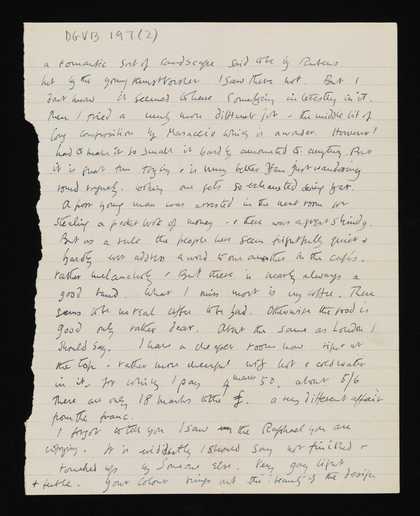 DGVB 197(2)
a romantic sort of landscape said to be by Rubens
but by the young I saw there not. But I
dont know it seemed to have something interesting in it.
Then I tried a much more different job - the middle bit of
composition by Masaccio which is a wonder. However I
had to make it so small it hardly amounted to anything. But
it is great fun trying & is very better than just wandering
round vaguely. Where one gets so exhausted doing that.
A poor young man was arrested in the next room for
stealing a pocket book of money - & there was a great shindy.
But as a rule the people here seem frightfully quiet &
hardly ever address a word to one another in the cafés.
rather melancholy - But there is nearly always a
good band. What I miss most is my coffee. There
seems to be no real coffee to be had. Otherwise the food is
good only rather dear. About the same as London I
should say. I have a cheaper room now right at
the top - rather more cheerful with hot & cold water
in it. for which I pay 4 marks 50. about 5/6
There are only 18 marks to the £. a very different affair
from the franc.
I forgot to tell you I saw the Raphael you are
copying. It is evidently I should say not finished &
touched up by someone else. Very gay light
+ subtle. Your colour brings out the beauty of the design